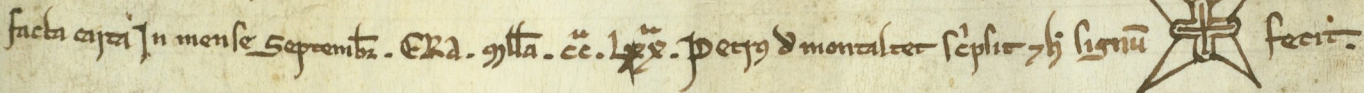 facta carta In mense Septembr̄. ERA. Mll̄a. CC̄ᵃ. LXXᵃ. Petrus d montaltet sc̄psit ⁊ h̄ signū fecit.